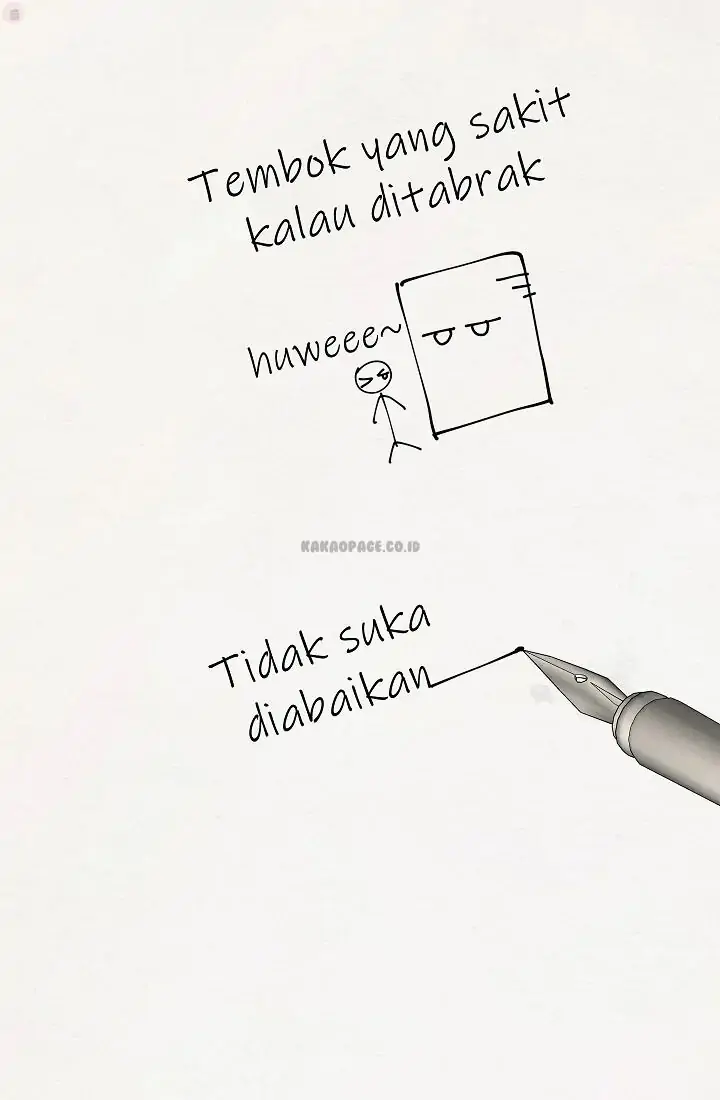 Tembok yang sakit
kalau ditabrak
huweee~
KAKAOPAGE.CO.ID
Tidak suka
diabaikan